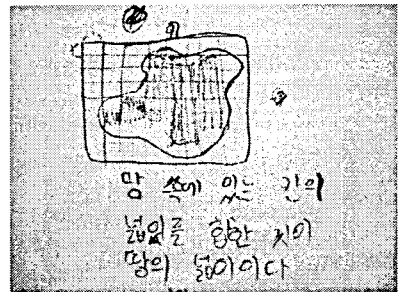 땅 속에 있는 칸의
넓이를 합한 것이
땅의 넓이이다